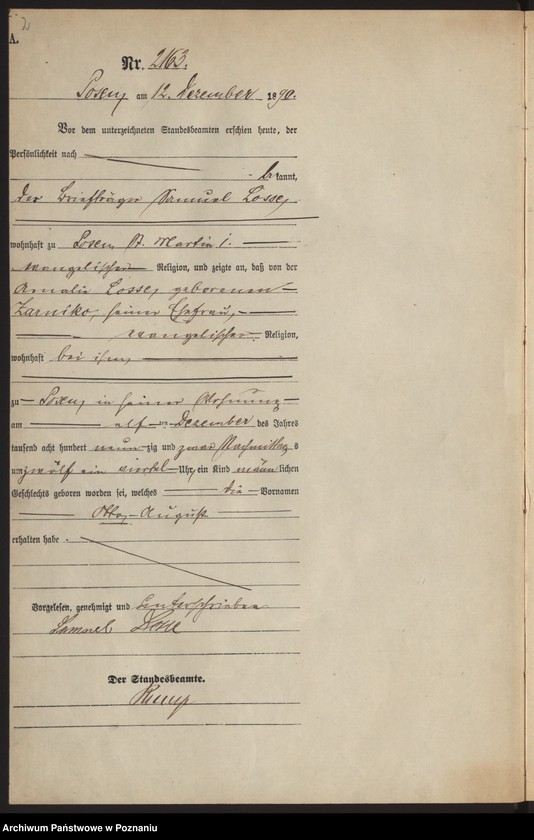 2
A.
Nr. 2163.
Posen, am 12. Dezember 1890.
Vor dem unterzeichneten Standesbeamten erschien heute, der
Persönlichkeit nach
be kannt,
der Briefträger Samuel Losse,
wohnhaft zu Posen, St. Martin 1.
evangelischer Religion, und zeigte an, daß von der
Amalie Losse, geborenen
Zarniko, seiner Ehefrau,
evangelischer Religion,
wohnhaft bei ihm,
zu Posen, in seiner Wohnung
am elften Dezember des Jahres
tausend acht hundert neun zig und zwar Nachmittag s
um zwölf ein viertel Uhr, ein Kind männ lichen
Geschlechts geboren worden sei, welches die Vornamen
Otto August
erhalten habe.
Vorgelesen, genehmigt und unterschrieben
Samuel Losse
Der Standesbeamte.
Archiwum Państwowe w Poznaniu